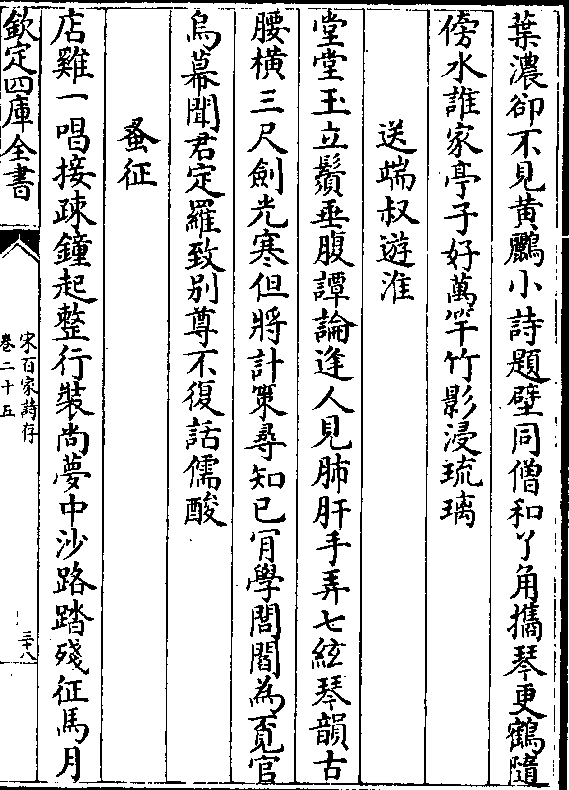 葉濃卻不見黄鸝小詩題壁同僧和丫角攜琴更鶴隨
傍水誰家亭子好萬竿竹影浸琉璃
送端叔遊淮
堂堂玉立鬚垂腹譚論逢人見肺肝手弄七絃琴韻古
腰横三尺劍光寒但將計策尋知已肎學閭閻為覓官
烏幕聞君定羅致别尊不復話儒酸
蚤征
店雞一唱接疎鐘起整行裝尚夢中沙路踏殘征馬月
欽定四庫全書
宋百家詩存
卷二十五
三十八